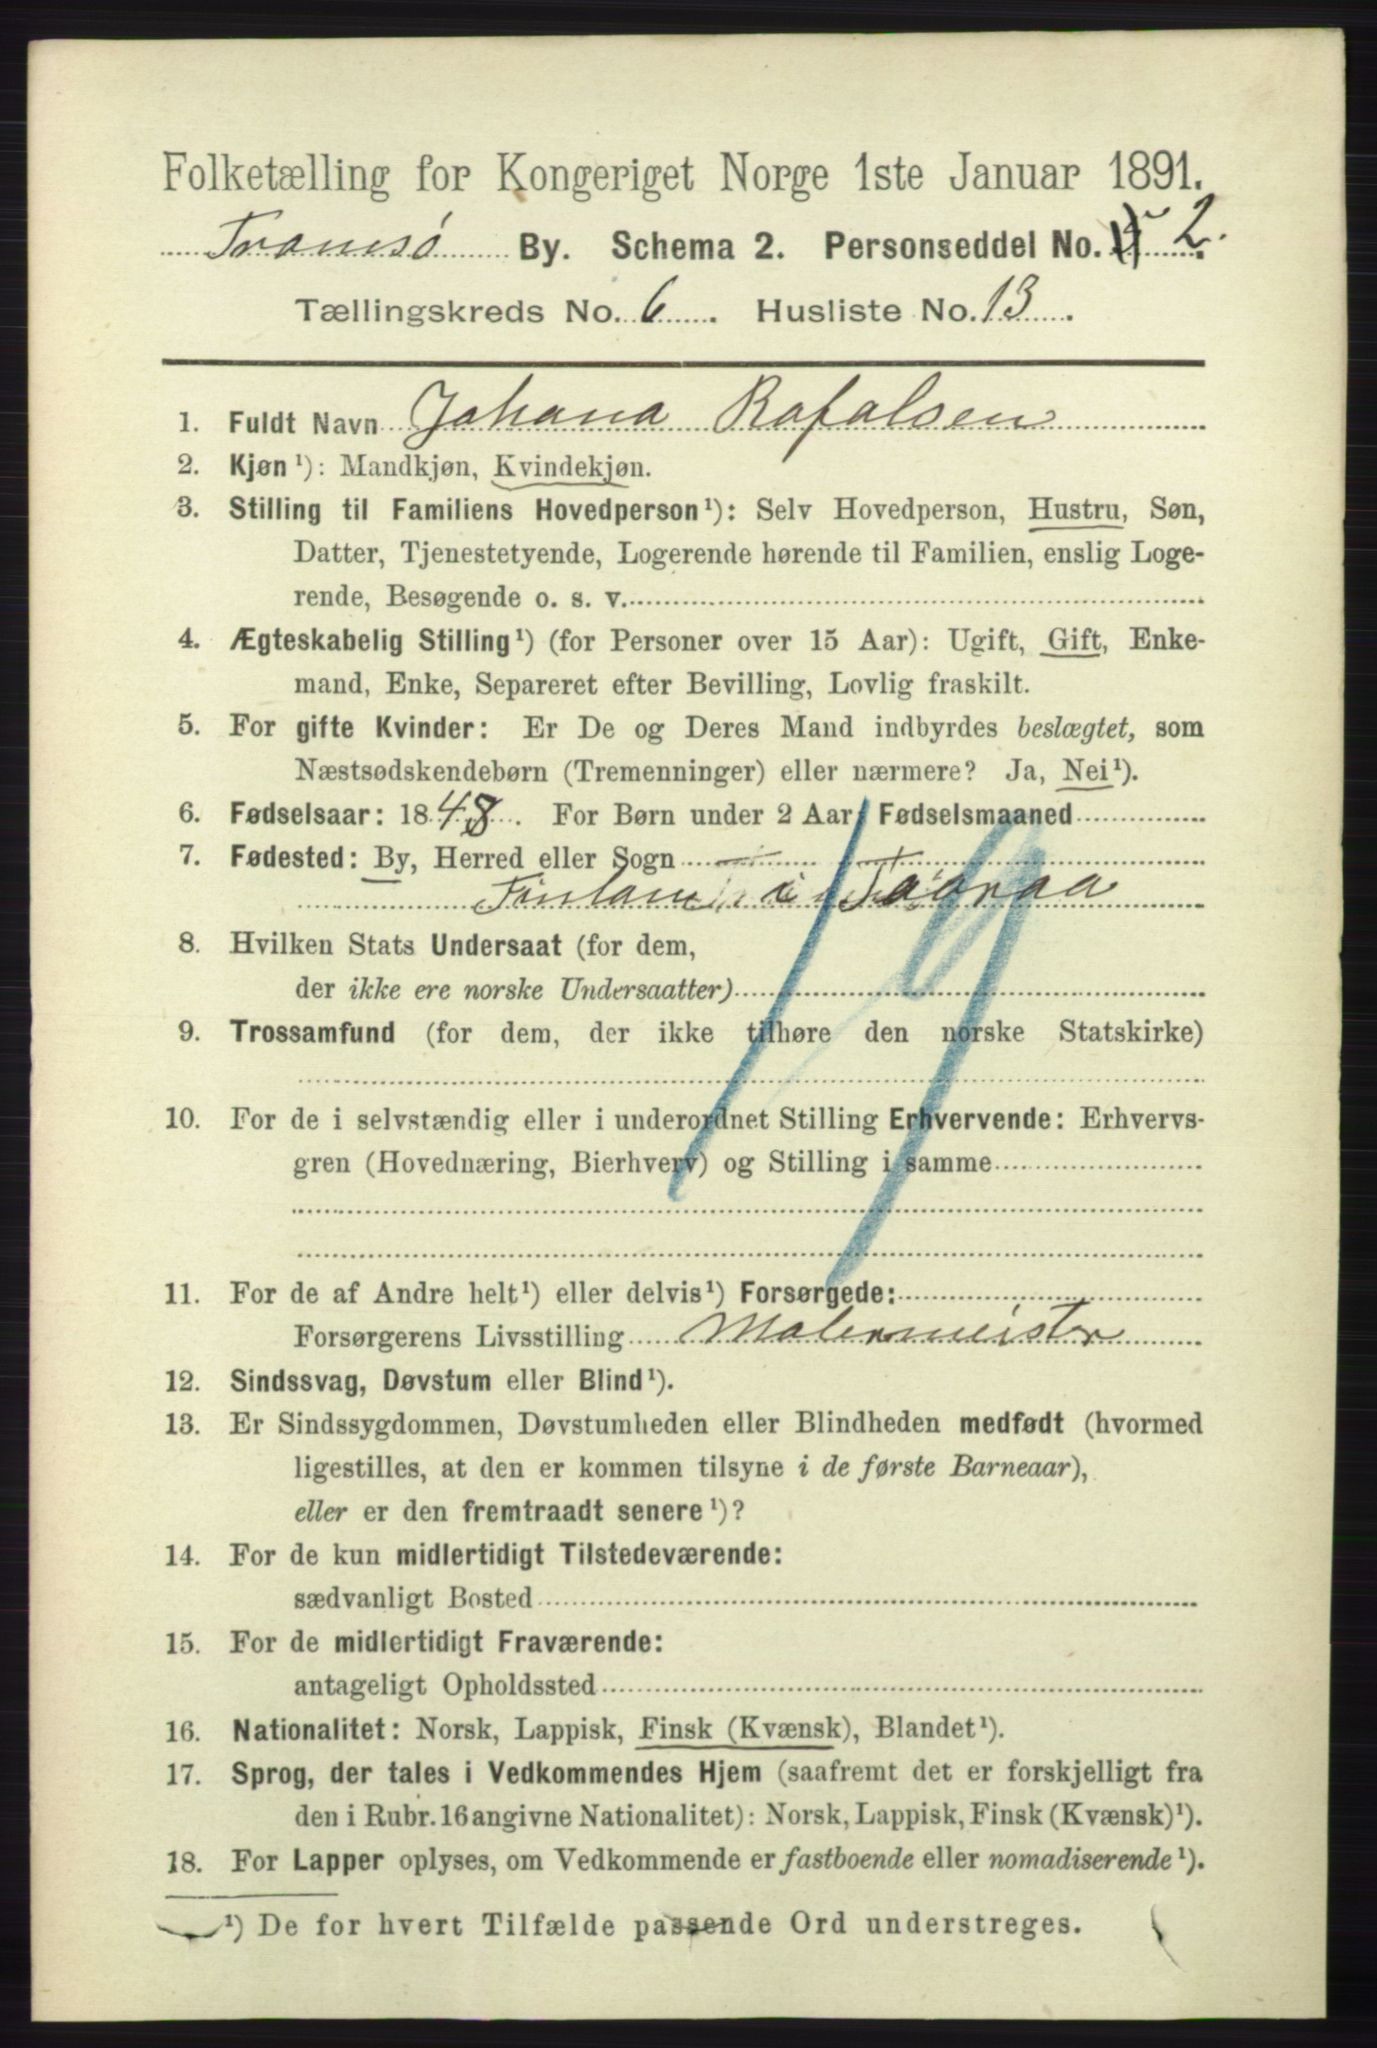 Folketælling for Kongeriget Norge 1ste Januar 1891.
Tromsø By. Schema 2. Personseddel No. 2.
Tællingskreds No. 6. Husliste No. 13.
1. Fuldt Navn Johana Rafalsen
2. Kjøn¹): Mandkjøn, Kvindekjøn.
3. Stilling til Familiens Hovedperson¹): Selv Hovedperson, Hustru, Søn,
Datter, Tjenestetyende, Logerende hørende til Familien, enslig Loge-
rende, Besøgende o. s. v.
4. Ægteskabelig Stilling¹) (for Personer over 15 Aar): Ugift, Gift, Enke-
mand, Enke, Separeret efter Bevilling, Lovlig fraskilt.
5. For gifte Kvinder: Er De og Deres Mand indbyrdes beslægtet, som
Næstsødskendebørn (Tremenninger) eller nærmere? Ja, Nei¹).
6. Fødselsaar: 1848. For Børn under 2 Aar: Fødselsmaaned
7. Fødested: By, Herred eller Sogn
Finland i
8. Hvilken Stats Undersaat (for dem,
der ikke ere norske Undersaatter)
9. Trossamfund (for dem, der ikke tilhøre den norske Statskirke)
10. For de i selvstændig eller i underordnet Stilling Erhvervende: Erhvervs-
gren (Hovednæring, Bierhverv) og Stilling i samme
11. For de af Andre helt¹) eller delvis¹) Forsørgede:
Forsørgerens Livsstilling Malermeister
12. Sindssvag, Døvstum eller Blind¹).
13. Er Sindssygdommen, Døvstumheden eller Blindheden medfødt (hvormed
ligestilles, at den er kommen tilsyne i de første Barneaar),
eller er den fremtraadt senere¹)?
14. For de kun midlertidigt Tilstedeværende:
sædvanligt Bosted
15. For de midlertidigt Fraværende:
antageligt Opholdssted
16. Nationalitet: Norsk, Lappisk, Finsk (Kvænsk), Blandet¹).
17. Sprog, der tales i Vedkommendes Hjem (saafremt det er forskjelligt fra
den i Rubr. 16 angivne Nationalitet): Norsk, Lappisk, Finsk (Kvænsk)¹).
18. For Lapper oplyses, om Vedkommende er fastboende eller nomadiserende¹).
¹) De for hvert Tilfælde passende Ord understreges.
19